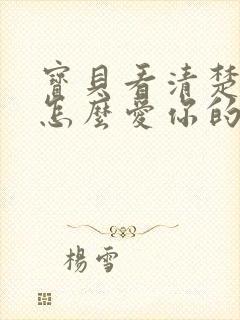 寶貝看清楚
怎麼愛你的
楊雪